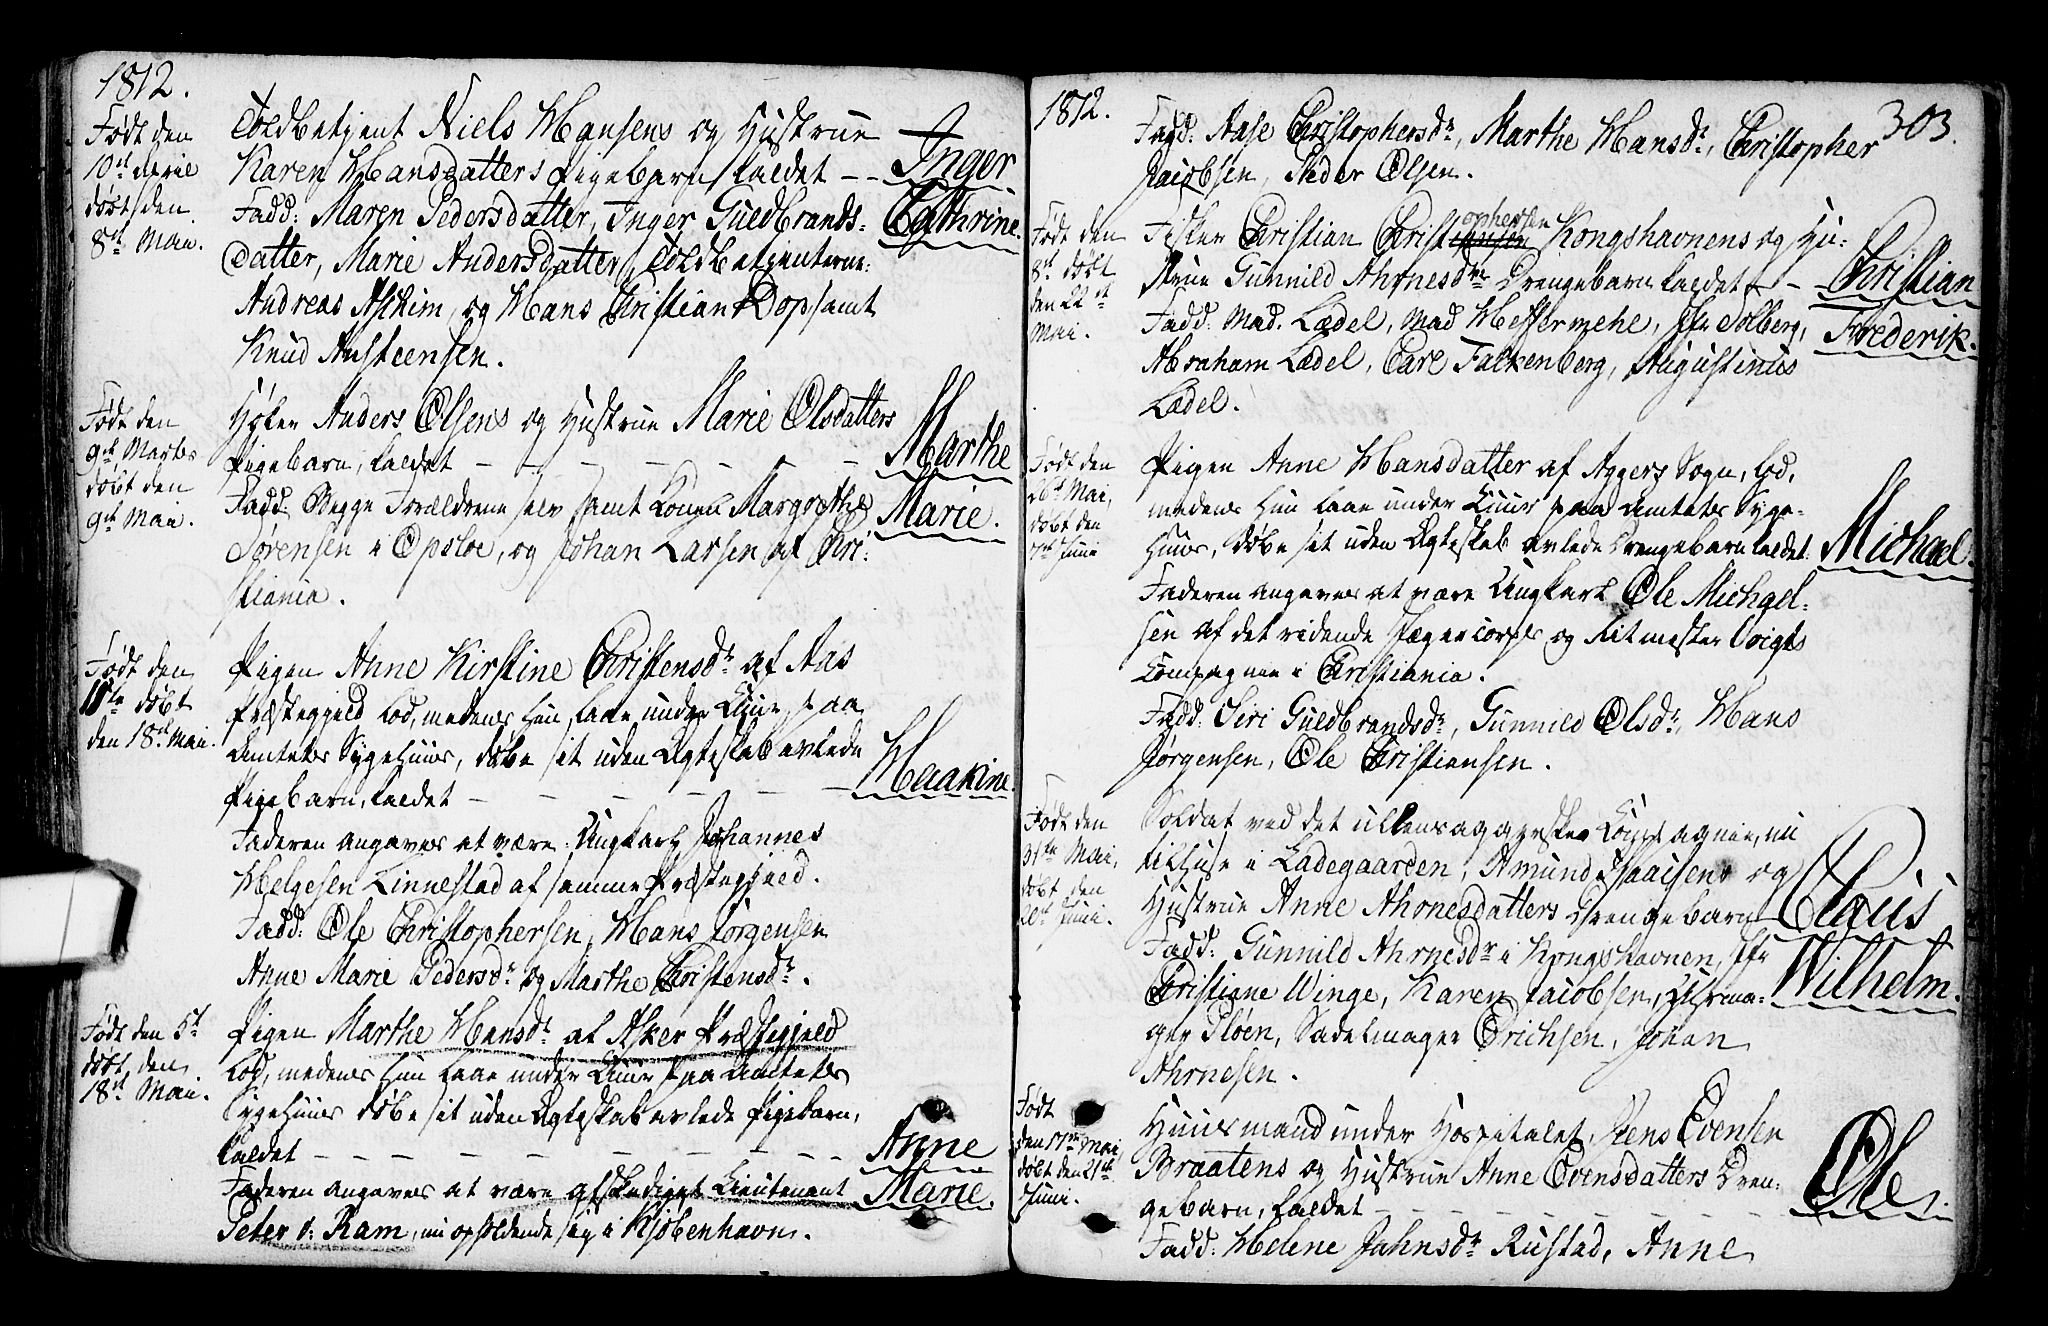 1812.
Født den
10de April
døbt den
8de Maii.
Toldbetjent Niels Hansens og Hustrue
Karen Hansdatters Pigebarn kaldet - - Inger
Fadd: Maren Pedersdatter, Inger Guldbrands= Cathrine.
datter, Marie Andersdatter, Toldbetjenterne:
Andreas Askim, og Hans Christian Dop samt
Knud Austeensen.
Født den
9de Martis
døbt den
9de Maii.
Høker Anders Olsens og Hustrue Marie Olsdatters
Pigebarn, kaldet - - - - - - - Marthe
Fadd: Begge Forældrene selv samt Konen Margrethe Marie.
Sørensen i Opsloe, og Johan Larsen af Chri=
stiania.
Født den
11te døbt
den 18de Maii.
Pigen Anne Kirstine Christensdr af Aas
Præstegjeld lod, medens hun laae under Kuur paa
Amtets Sygehuus, døbe sit uden Ægteskab avlede
Pigebarn, kaldet - - - - - - - Haakine.
Faderen angaves at være: Ungkarl Johannes
Helgesen Linnestad af samme Præstegjeld.
Fadd: Ole Christophersen, Hans Jørgensen
Anne Marie Pedersdr og Marthe Christensdr.
Født den 5te
døbt den
18de Maii.
Pigen Marthe Hansdr af Asker Præstegjeld
lod, medens hun laae under Kuur paa Amtets
Sygehuus døbe sit uden Ægteskab avlede Pigebarn,
kaldet - - - - - - - - - - Anne
Faderen angaves at være afskediget Lieutenant Marie.
Peter v: Ram, nu opholdende sig i Kjøbenhavn.
1812.
303.
Fadd: Aase Christophersdr, Marthe Hansdr, Christopher
Jacobsen, Peder Olsen.
Født den
8de døbt
den 22de
Maii.
Fisker Christian Christophersen Kongshavnens og Hu=
strue Gunnild Ahrnesdrs Drengebarn kaldet - - Christian
Fadd: Mad. Lædel, Mad Hessermehl, Jfr Solberg, Frederik.
Abraham Lædel, Carl Falkenberg, Augustinus
Lædel.
Født den
26de Maii,
døbt den
7de Junii
Pigen Anne Hansdatter af Aggers Sogn, lod,
medens hun laae under Kuur paa Amtets Syge-
huus, døbe sit uden Ægteskab avlede Drengebarn kaldet Michael.
Faderen angaves at være Ungkarl Ole Michael=
sen af det ridende Jægercorps og Ritmester Voigts
Compagnie i Christiania.
Fadd: Siri Guldbrandsdr, Gunnild Olsdr, Hans
Jørgensen, Ole Christiansen.
Født den
31te Maii,
døbt den
20de Junii.
Soldat ved det ullensaggerske Compagnie, nu
tilhuse i Ladegaarden, Amund Isaaisens og
Hustrue Anne Ahrnesdatters Drengebarn Claus
Fadd: Gunnild Ahrnesdr i Kongshavnen, Jfr Wilhelm.
Christiane Winge, Karen Jacobsen, Uhrma=
ger Pløen, Sadelmager Erichsen, Johan
Ahrnesen.
Født
den 17de Maii
døbt den 21de
Junii.
Huusmand under Hospitalet, Jens Evensen
Braatens og Hustrue Anne Evensdatters Dren=
gebarn, kaldet - - - - - - - - Ole.
Fadd: Helene Jahnsdr Rustad, Anne